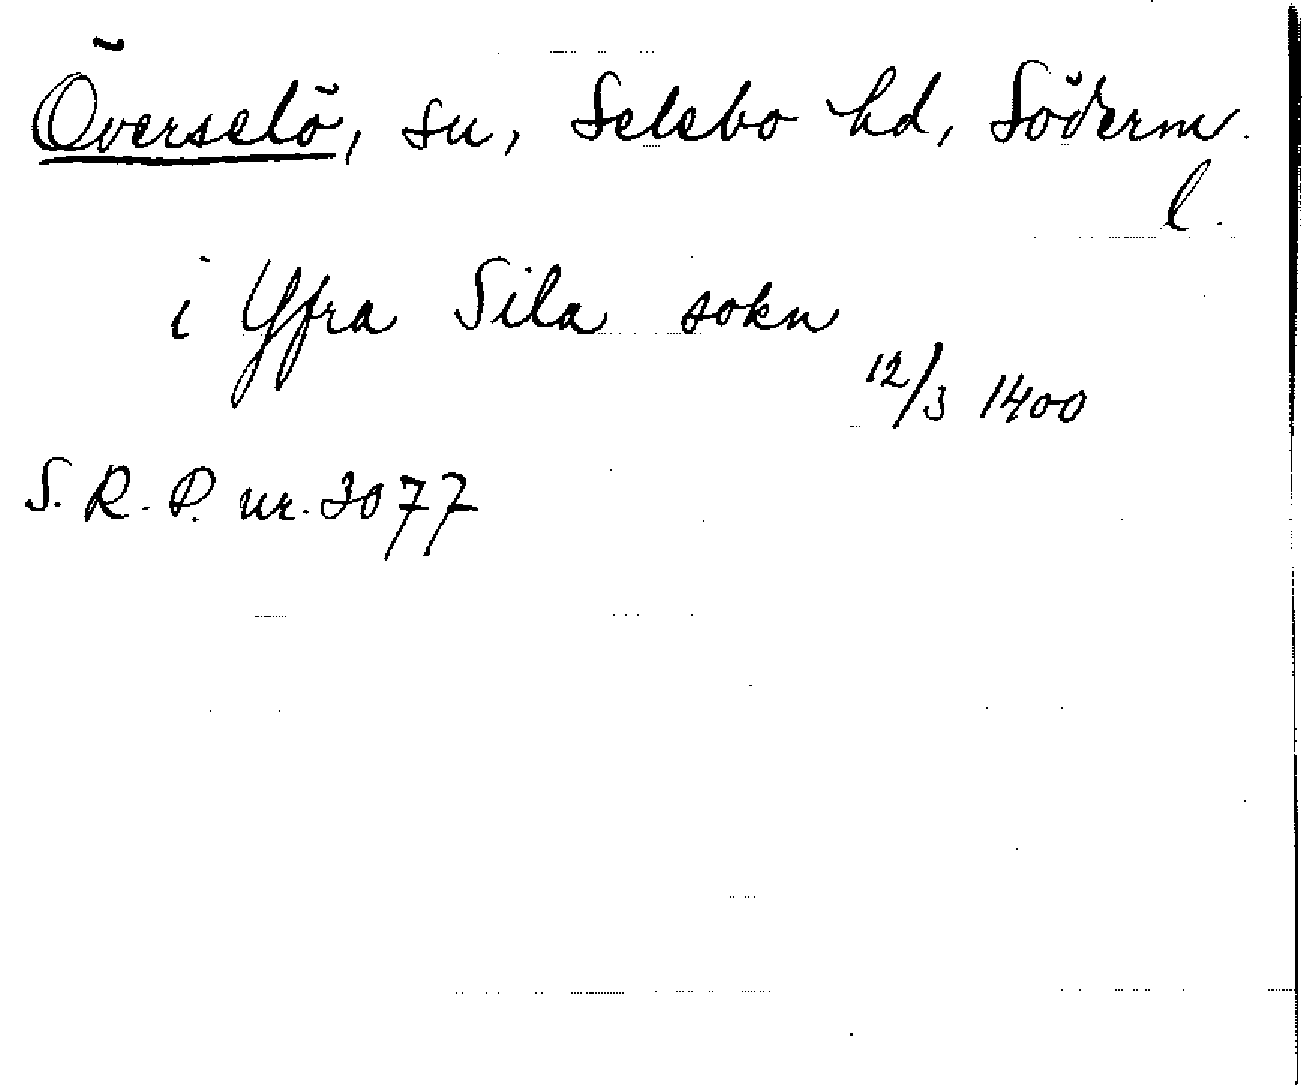 Överselö, sn, Selebo hd, Söderm.
l.
i Yfra Sila sokn
12/3 1400
S. R. P. nr. 3077